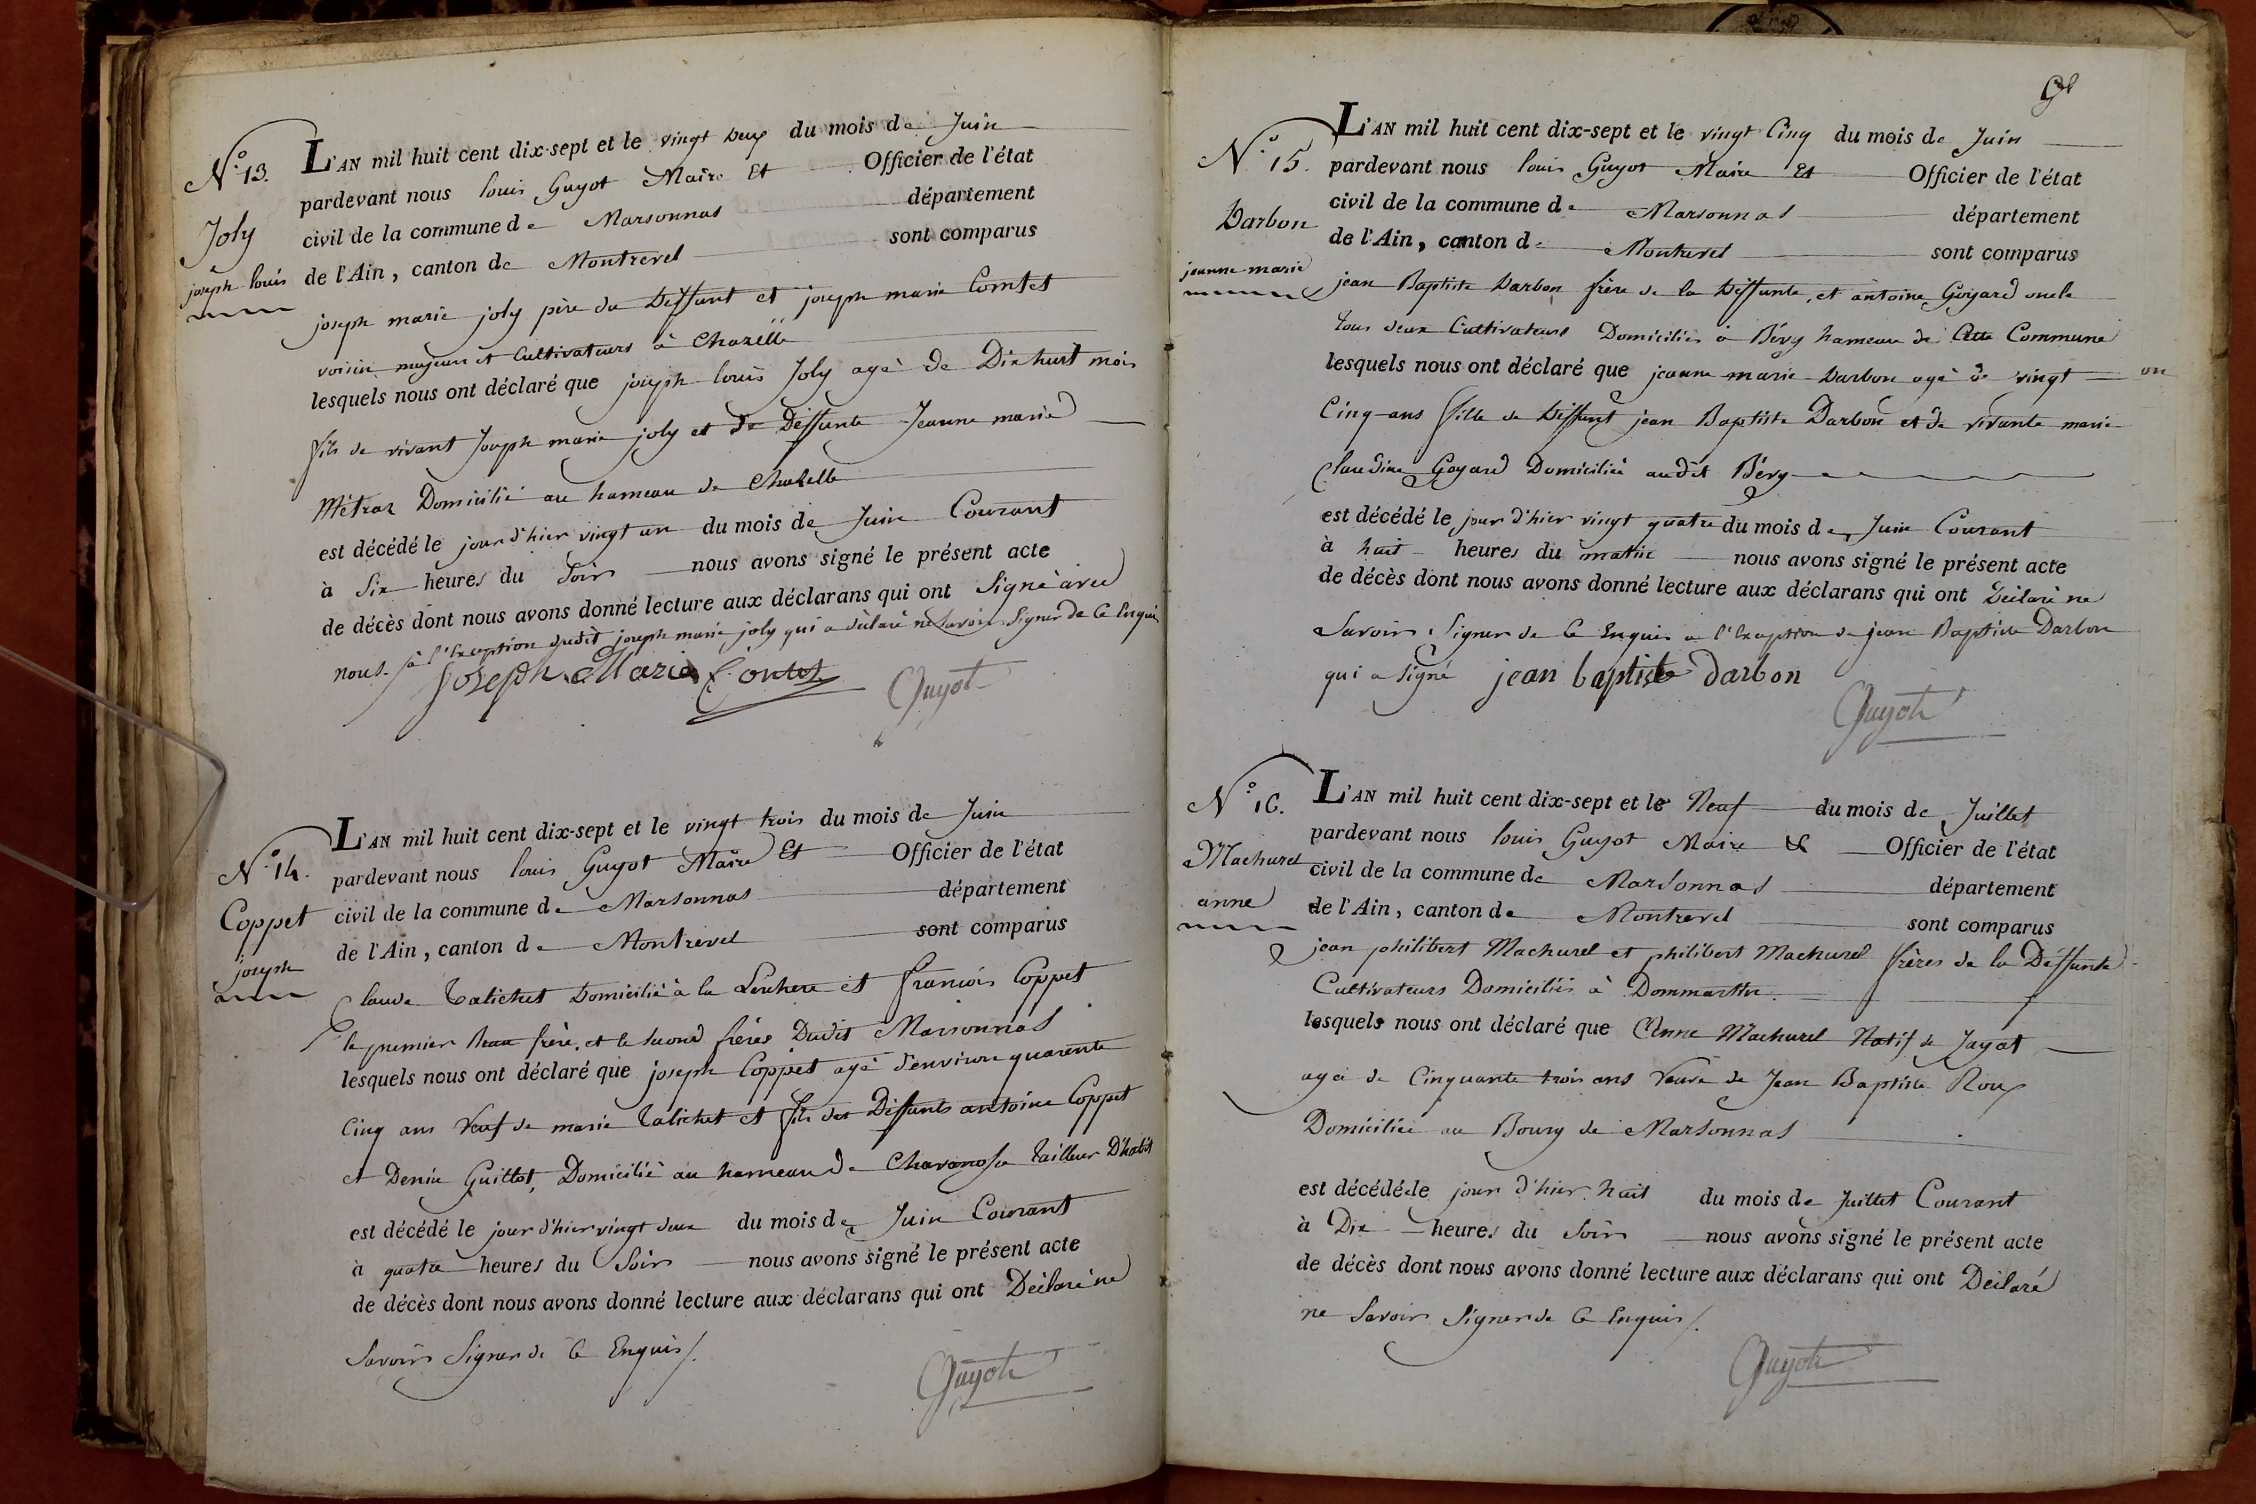 N.° 13.
Joly
joseph louis
L'AN mil huit cent dix-sept et le vingt Deux du mois de Juin
pardevant nous louis Guyot Maire Et Officier de l'état
civil de la commune de Marsonnas département
de l'Ain, canton de Montrevel sont comparus
joseph marie joly père du Deffunt et joseph marie Comtet
voisin majeurs et Cultivateurs à Chazelle
lesquels nous ont déclaré que joseph louis Joly agé de Dix huit mois
fils de vivant Joseph marie joly et de Deffunte Jeanne marie
Métraz Domicilié au hameau de Chazelle
est décédé le jour d'hier vingt un du mois de Juin Courant
à Six heures du Soir nous avons signé le présent acte
de décès dont nous avons donné lecture aux déclarans qui ont Signé avec
nous. à l'Exception dudit joseph marie joly qui a déclaré ne Savoir Signer de Ce Enquis
Joseph Marie Contet Guyot
N.° 14.
Coppet
joseph
L'AN mil huit cent dix-sept et le vingt trois du mois de Juin
pardevant nous louis Guyot Maire Et Officier de l'état
civil de la commune de Marsonnas département
de l'Ain, canton de Montrevel sont comparus
Claude Talichet Domicilié à la et francois Coppet
le premier Beau frère, et le second frères Dudit Marsonnas
lesquels nous ont déclaré que joseph Coppet agé d'environ quarente
Cinq ans Veuf de marie Talichet et fils des Deffunts antoine Coppet
et Denise Guillot, Domicilié au hameau de tailleur D'habit
est décédé le jour d'hier vingt deux du mois de Juin Courant
à quatre heures du Soir nous avons signé le présent acte
de décès dont nous avons donné lecture aux déclarans qui ont Déclaré ne
Savoir Signer de Ce Enquis
Guyot
N.° 15.
Darbon
jeanne marie
L'AN mil huit cent dix-sept et le vingt Cinq du mois de Juin
pardevant nous louis Guyot Maire Et Officier de l'état
civil de la commune de Marsonnas département
de l'Ain, canton de Montrevel sont comparus
jean Baptiste Darbon frère de la Deffunte, et antoine Goyard oncle
tous deux Cultivateurs Domiciliés à Bévy hameau de Cette Commune
lesquels nous ont déclaré que jeanne marie Darbon agé de vingt
Cinq ans fille de Deffunt jean Baptiste Darbon et de vivante marie
Claudine Goyard Domiciliée audit Bévy
est décédé le jour d'hier vingt quatre du mois de Juin Courant
à huit heures du matin nous avons signé le présent acte
de décès dont nous avons donné lecture aux déclarans qui ont Déclaré ne
Savoir Signer de Ce Enquis a l'Exception de jean Baptiste Darbon
qui a Signé jean baptiste darbon
Guyot
N.° 16.
Machurel
anne
L'AN mil huit cent dix-sept et le Neuf du mois de Juillet
pardevant nous louis Guyot Maire & Officier de l'état
civil de la commune de Marsonnas département
de l'Ain, canton de Montrevel sont comparus
jean philibert Machurel et philibert Machurel frères de la Deffunte
Cultivateurs Domiciliés à Dommartin
lesquels nous ont déclaré que Anne Machurel Natif de Jayat
agée de Cinquante trois ans Veuve de Jean Baptiste Roux
Domiciliée au Bourg de Marsonnas
est décédée le jour d'hier huit du mois de Juillet Courant
à Dix heures du Soir nous avons signé le présent acte
de décès dont nous avons donné lecture aux déclarans qui ont Déclaré
ne Savoir Signer de Ce Enquis
Guyot